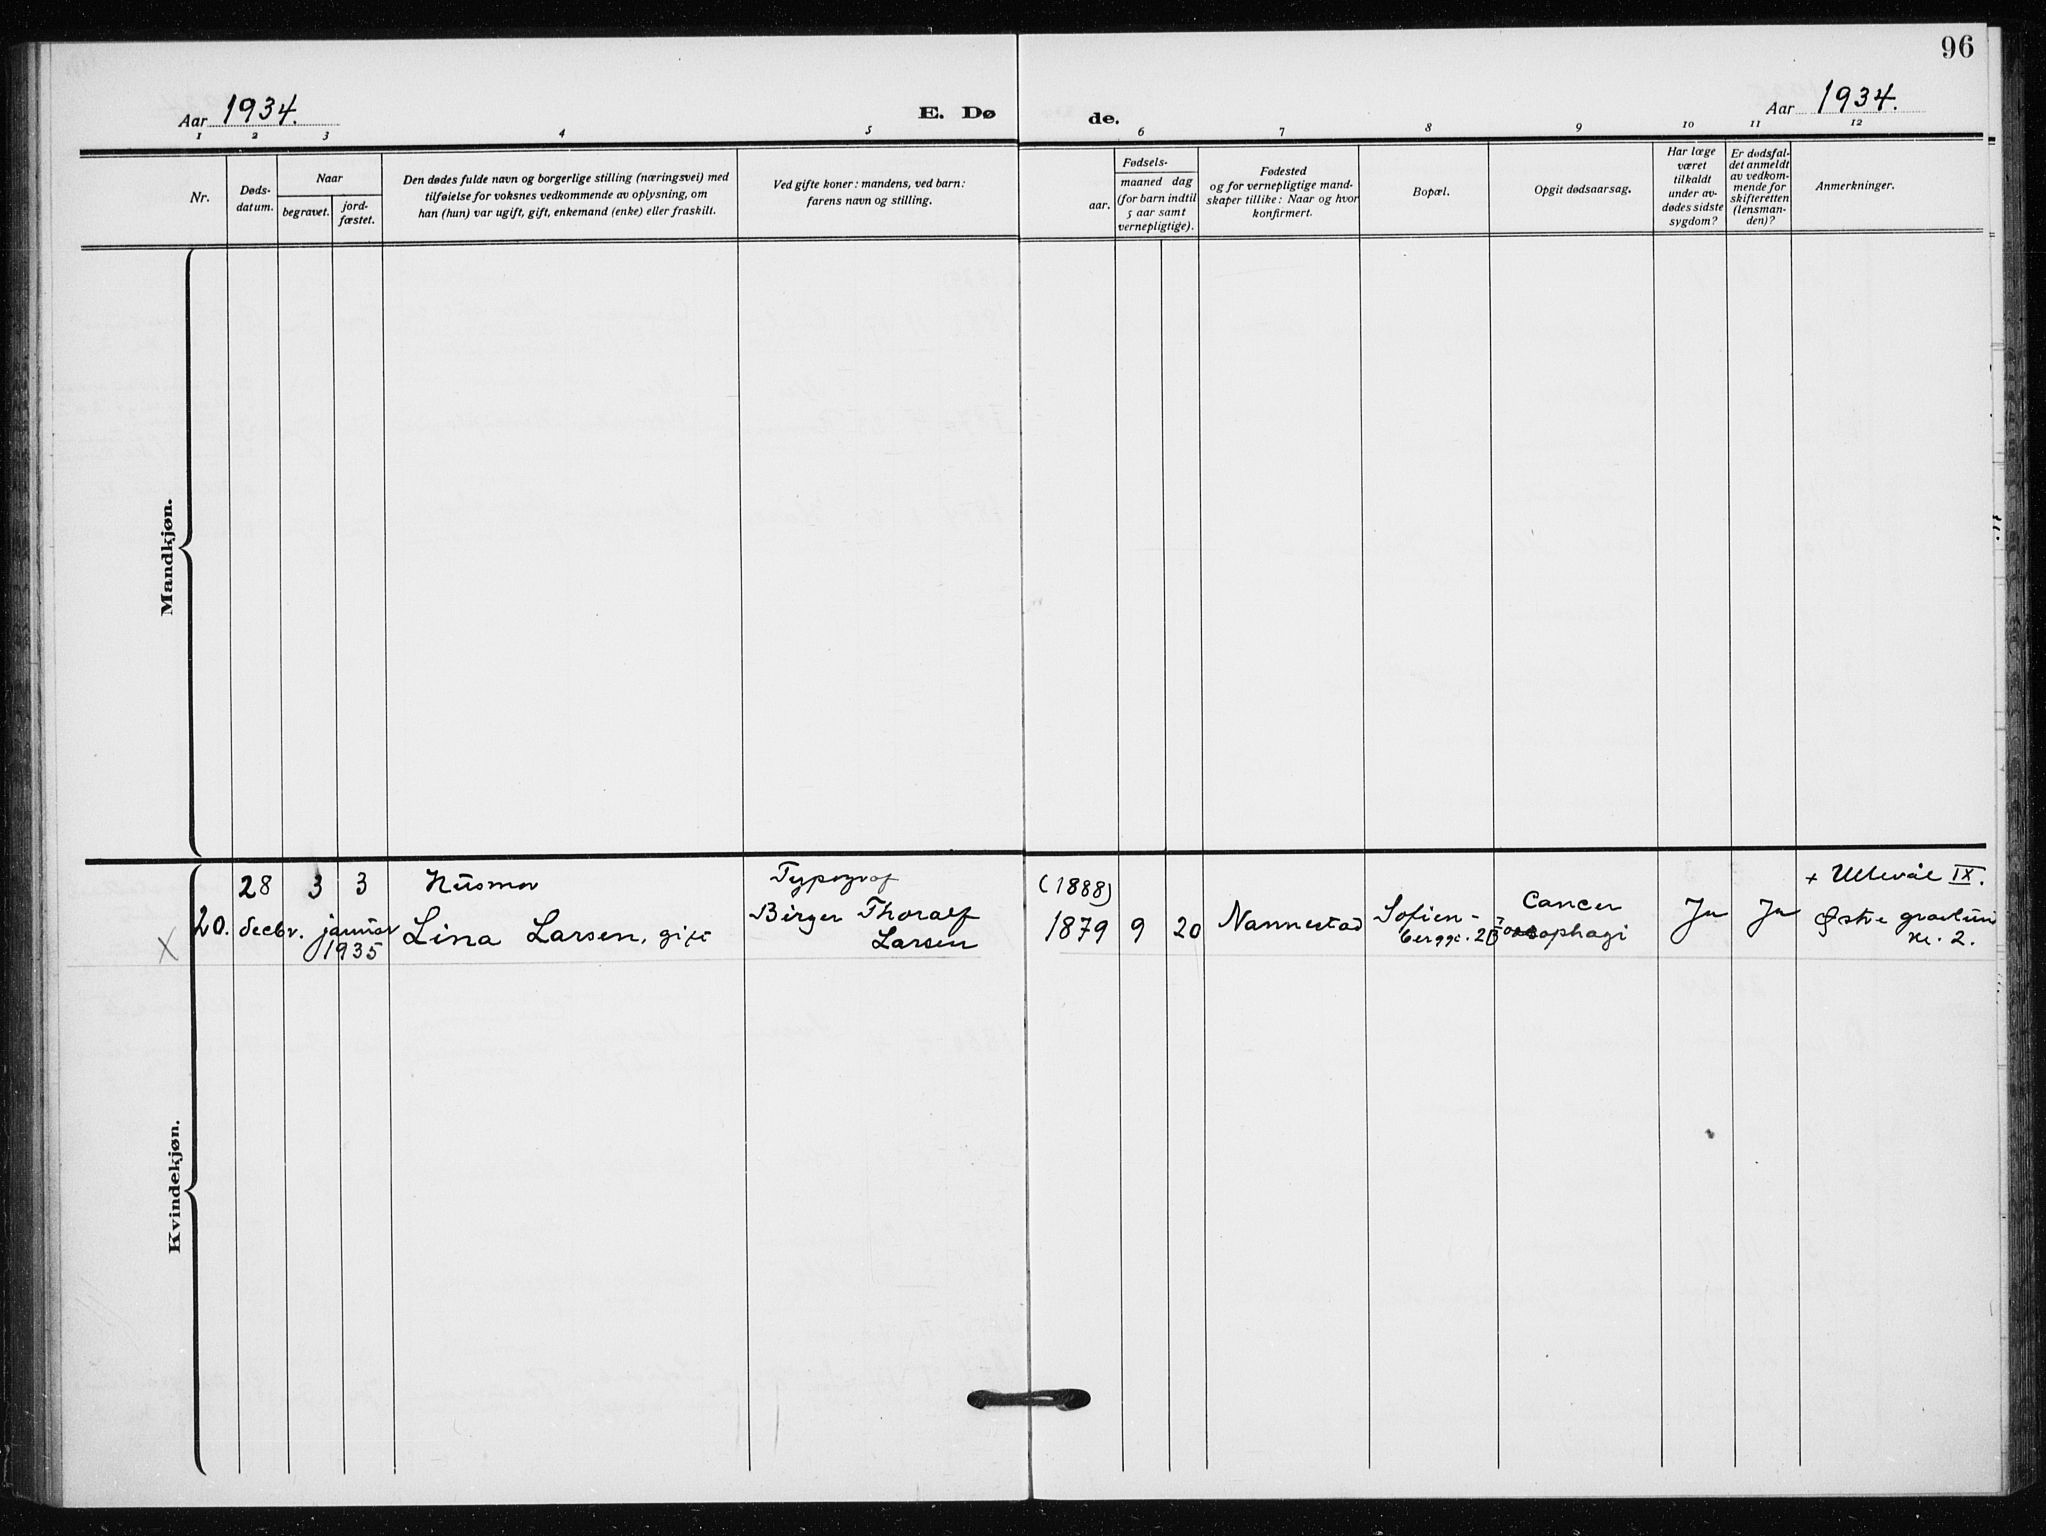 96
Aar 1934.
E. Døde.
Aar 1934.
1 2 3 4 5 6 7 8 9 10 11 12
Nr.
Døds-
datum.
Naar
begravet.
jord-
fæstet.
Den dødes fulde navn og borgerlige stilling (næringsvei) med
tilføielse for voksnes vedkommende av oplysning, om
han (hun) var ugift, gift, enkemand (enke) eller fraskilt.
Ved gifte koner: mandens, ved barn:
farens navn og stilling.
Fødsels-
aar.
maaned dag
(for barn indtil
5 aar samt
vernepligtige).
Fødested
og for vernepligtige mand-
skaper tillike: Naar og hvor
konfirmert.
Bopæl.
Opgit dødsaarsag.
Har læge
været
tilkaldt
under av-
dødes sidste
sygdom?
Er dødsfal-
det anmeldt
av vedkom-
mende for
skifteretten
(lensman-
den)?
Anmerkninger.
Mandkjøn.
Kvindekjøn.
X
20.
28
decbr.
3 3
januar
1935
Husmor
Lina Larsen, gift
Typograf
Birger Thoralf
Larsen
(1888)
1879 9 20
Nannestad
Sofien-
bergg.
Cancer
Ja
Ja
+ Ullevål IX.
Østre gravlund